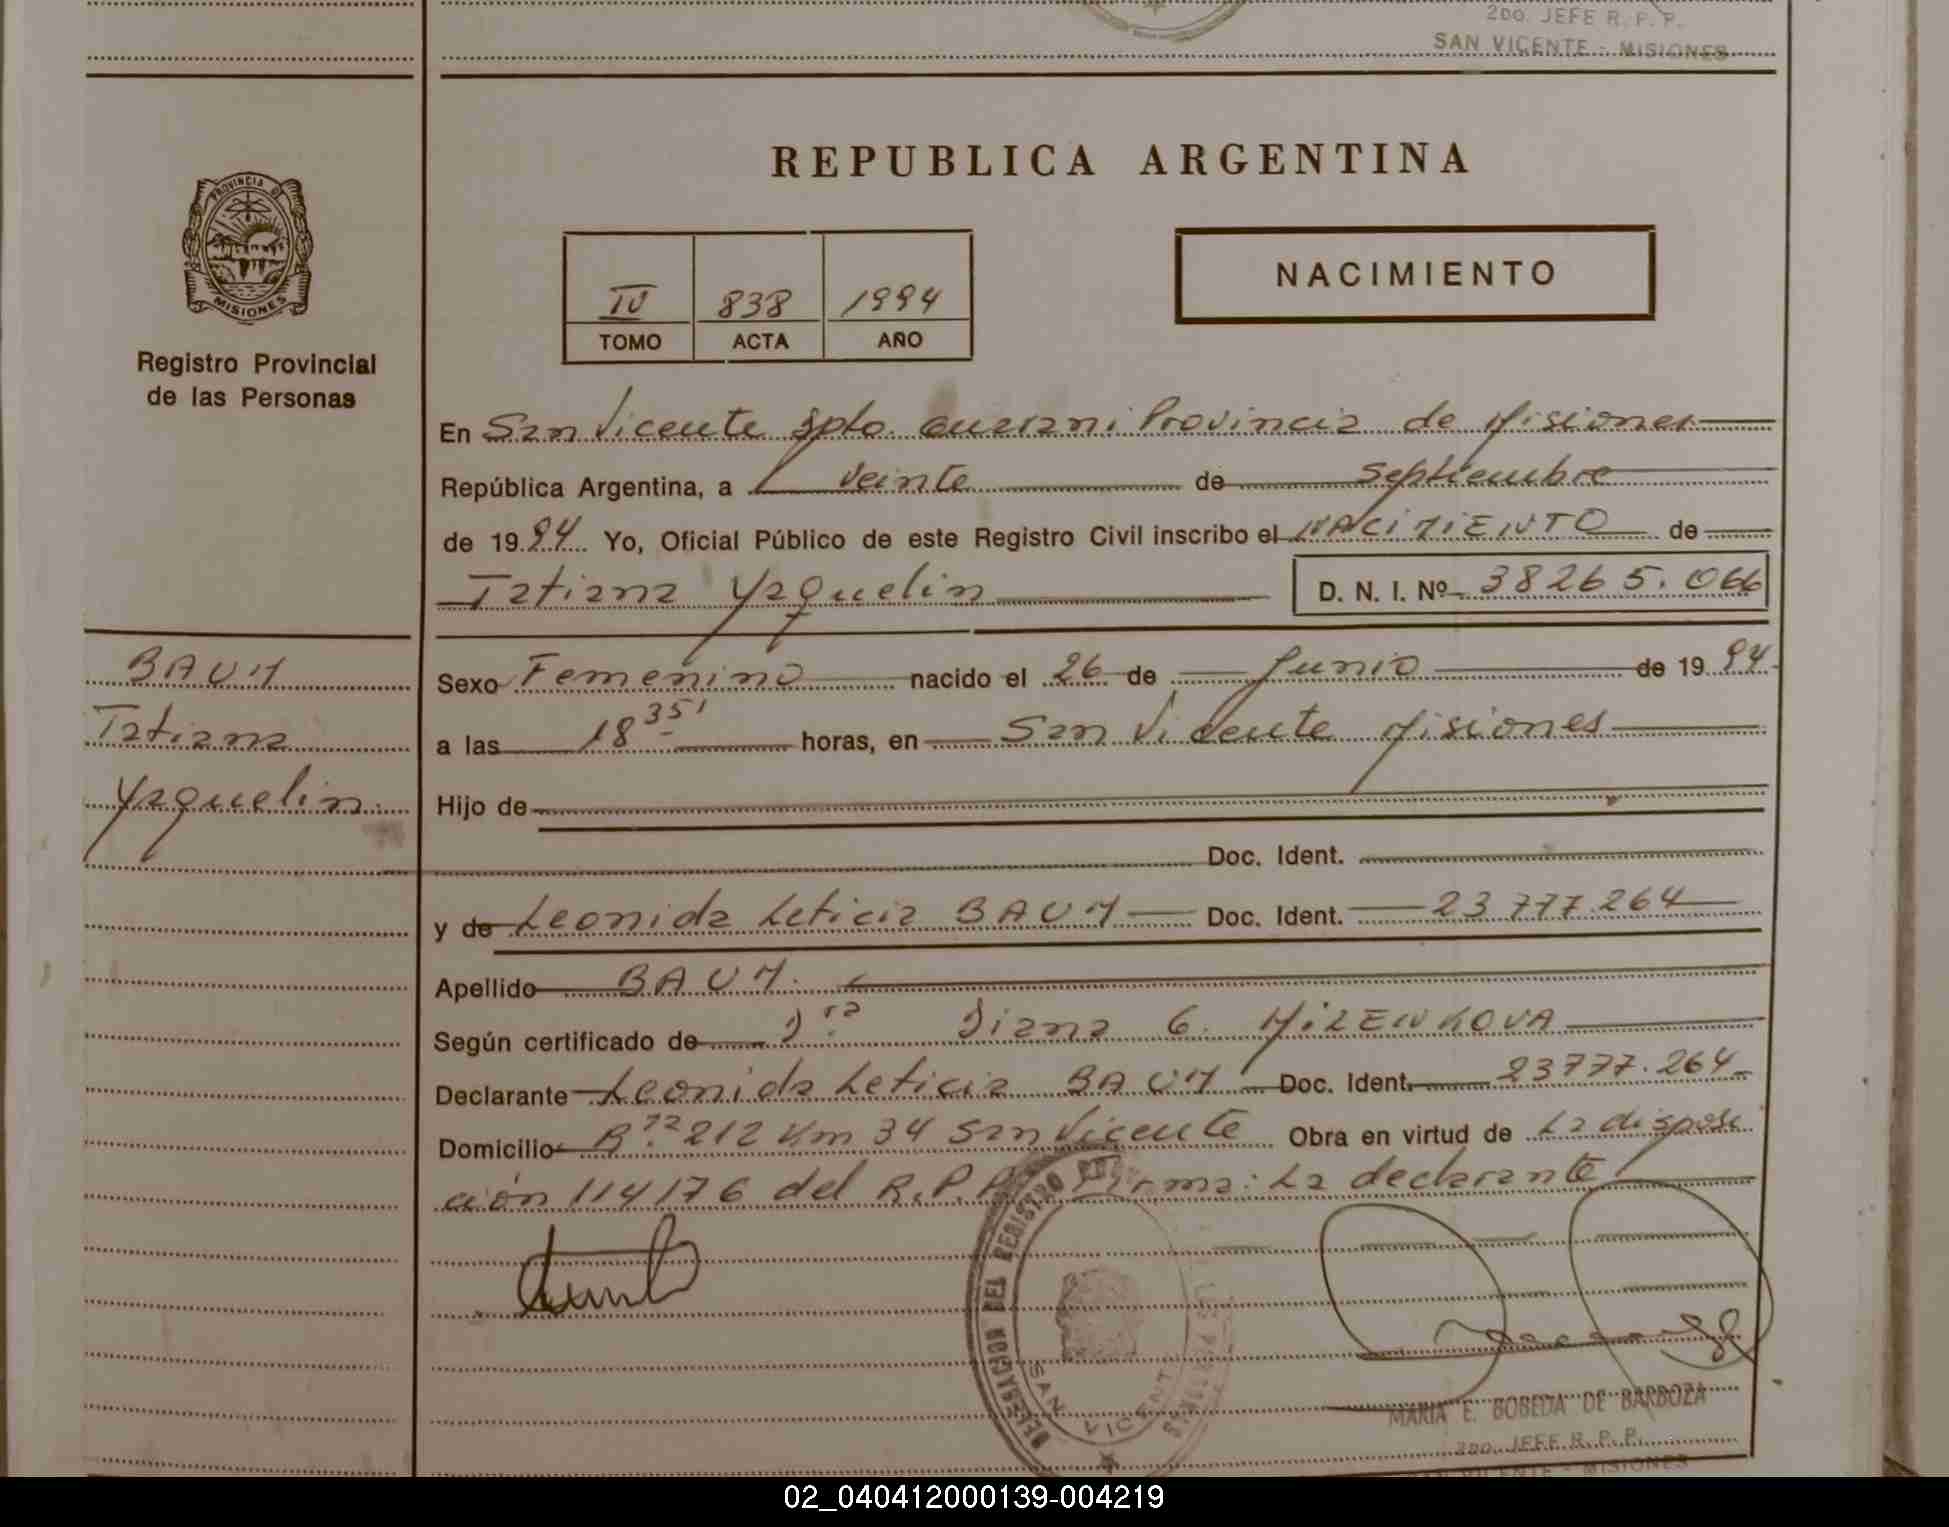 2DO. JEFE R. P. P.
SAN VICENTE - MISIONES
PROVINCIA DE
MISIONES
Registro Provincial
de las Personas
REPUBLICA ARGENTINA
IV 838 1994
TOMO ACTA AÑO
NACIMIENTO
En San Vicente Dpto. Guarani Provincia de Misiones
República Argentina, a veinte de Septiembre
de 1994 Yo, Oficial Público de este Registro Civil inscribo el NACIMIENTO de
Tatiana Yaquelin D. N. I. Nº 38265.066
BAUM
Tatiana
Yaquelin.
Sexo Femenino nacido el 26 de Junio de 1994
a las 18 35' horas, en San Vicente Misiones
Hijo de
Doc. Ident.
y de Leonida Leticia BAUM Doc. Ident. 23 777.264
Apellido BAUM.
Según certificado de Dra Diana G. MILENKOVA
Declarante Leonida Leticia BAUM Doc. Ident. 23777.264
Domicilio Rta 212 Km 34 San Vicente Obra en virtud de La disposi
ción 114176 del R.P.P. Firma: La declarante
DELEGACION DEL REGISTRO
SAN VICENTE
MARIA E. BOBEDA DE BARBOZA
2DO. JEFE R. P. P.
SAN VICENTE - MISIONES
02_040412000139-004219